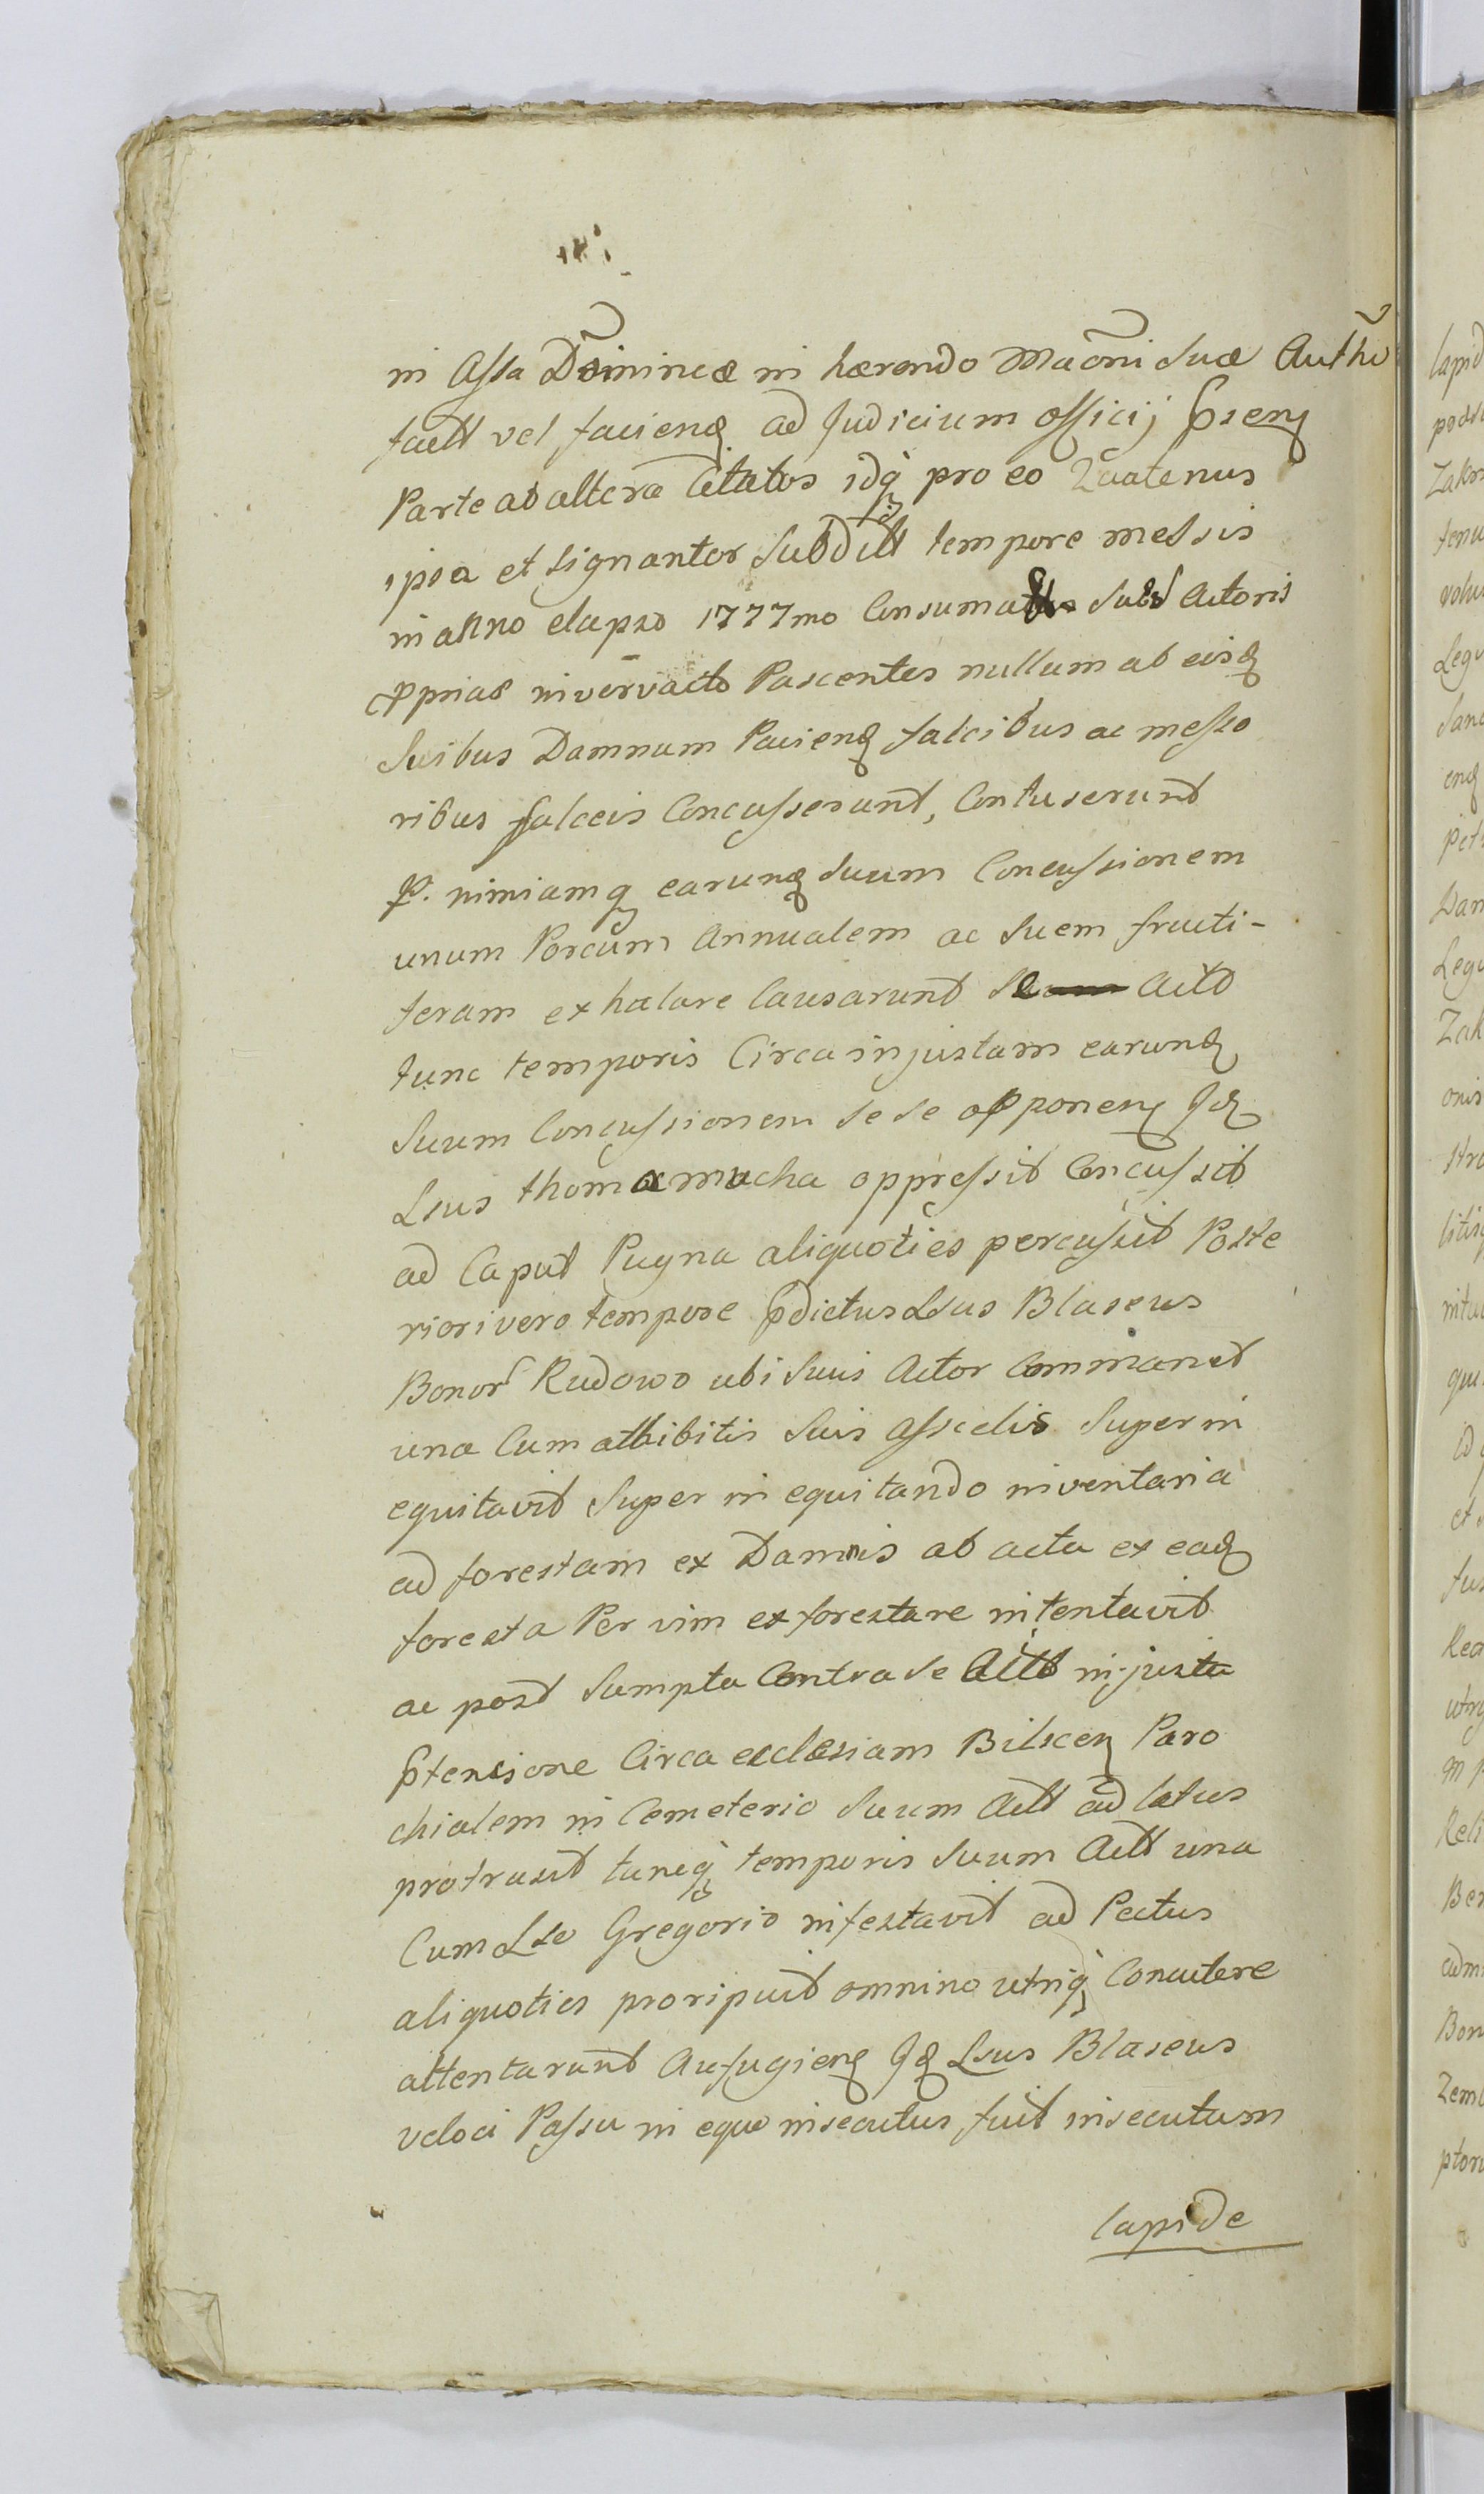 in Assa Dominicæ in hærendo Macõni suæ Autho
factt vel facienđ ad Judicium officij pñtem
Parte ab altera Citatos idq̃ pro eo Quatenus
ipsa et signantor Subditt tempore messis
in anno elapso 1777mo Consumatt Sues Actoris
pprias in vervacto Pascentes nullum ab eisđ
Suibus Damnum Pacienđ falcibus ac messo
ribus falceis Concusserunt, Contuserunt
P. nimiamq̃ earunđ Suum Concussionem
unum Porcum Annualem ac Suem fructi-
feram exhalare Causarunt Se Actt
tunc temporis Circa injustam earunđ
Suum Concussionem sese opponen Jđ
Lsus thoma mucha oppressit Concussit
ad Caput Pugna aliquoties percusit Poste
riori vero tempore pdictus Lsus Blaseus
Bonor Rudowo ubi Suus Actor Commanet
una Cum athibitis Suis asseclis Super in
equitavit Super in equitando inventaria
ad forestam ex Damnis ab acta ex eađ
foresta Per vim exforestare intentavit
ac post Sumpta Contra se Actt injusta
ptensione Circa ecclesiam Bilscen Paro
chialem in Cemeterio Suum Actt ad latus
protrusit tuncq̃ temporis Suum Actt una
Cum Lso Gregorio infestavit ad Pectus
aliquoties proripuit omnino utriq̃ Concutere
attentarunt Aufugienđ Jđ Lsus Blaseus
veloci Passu in equo insecutus fuit insecutum
lapide